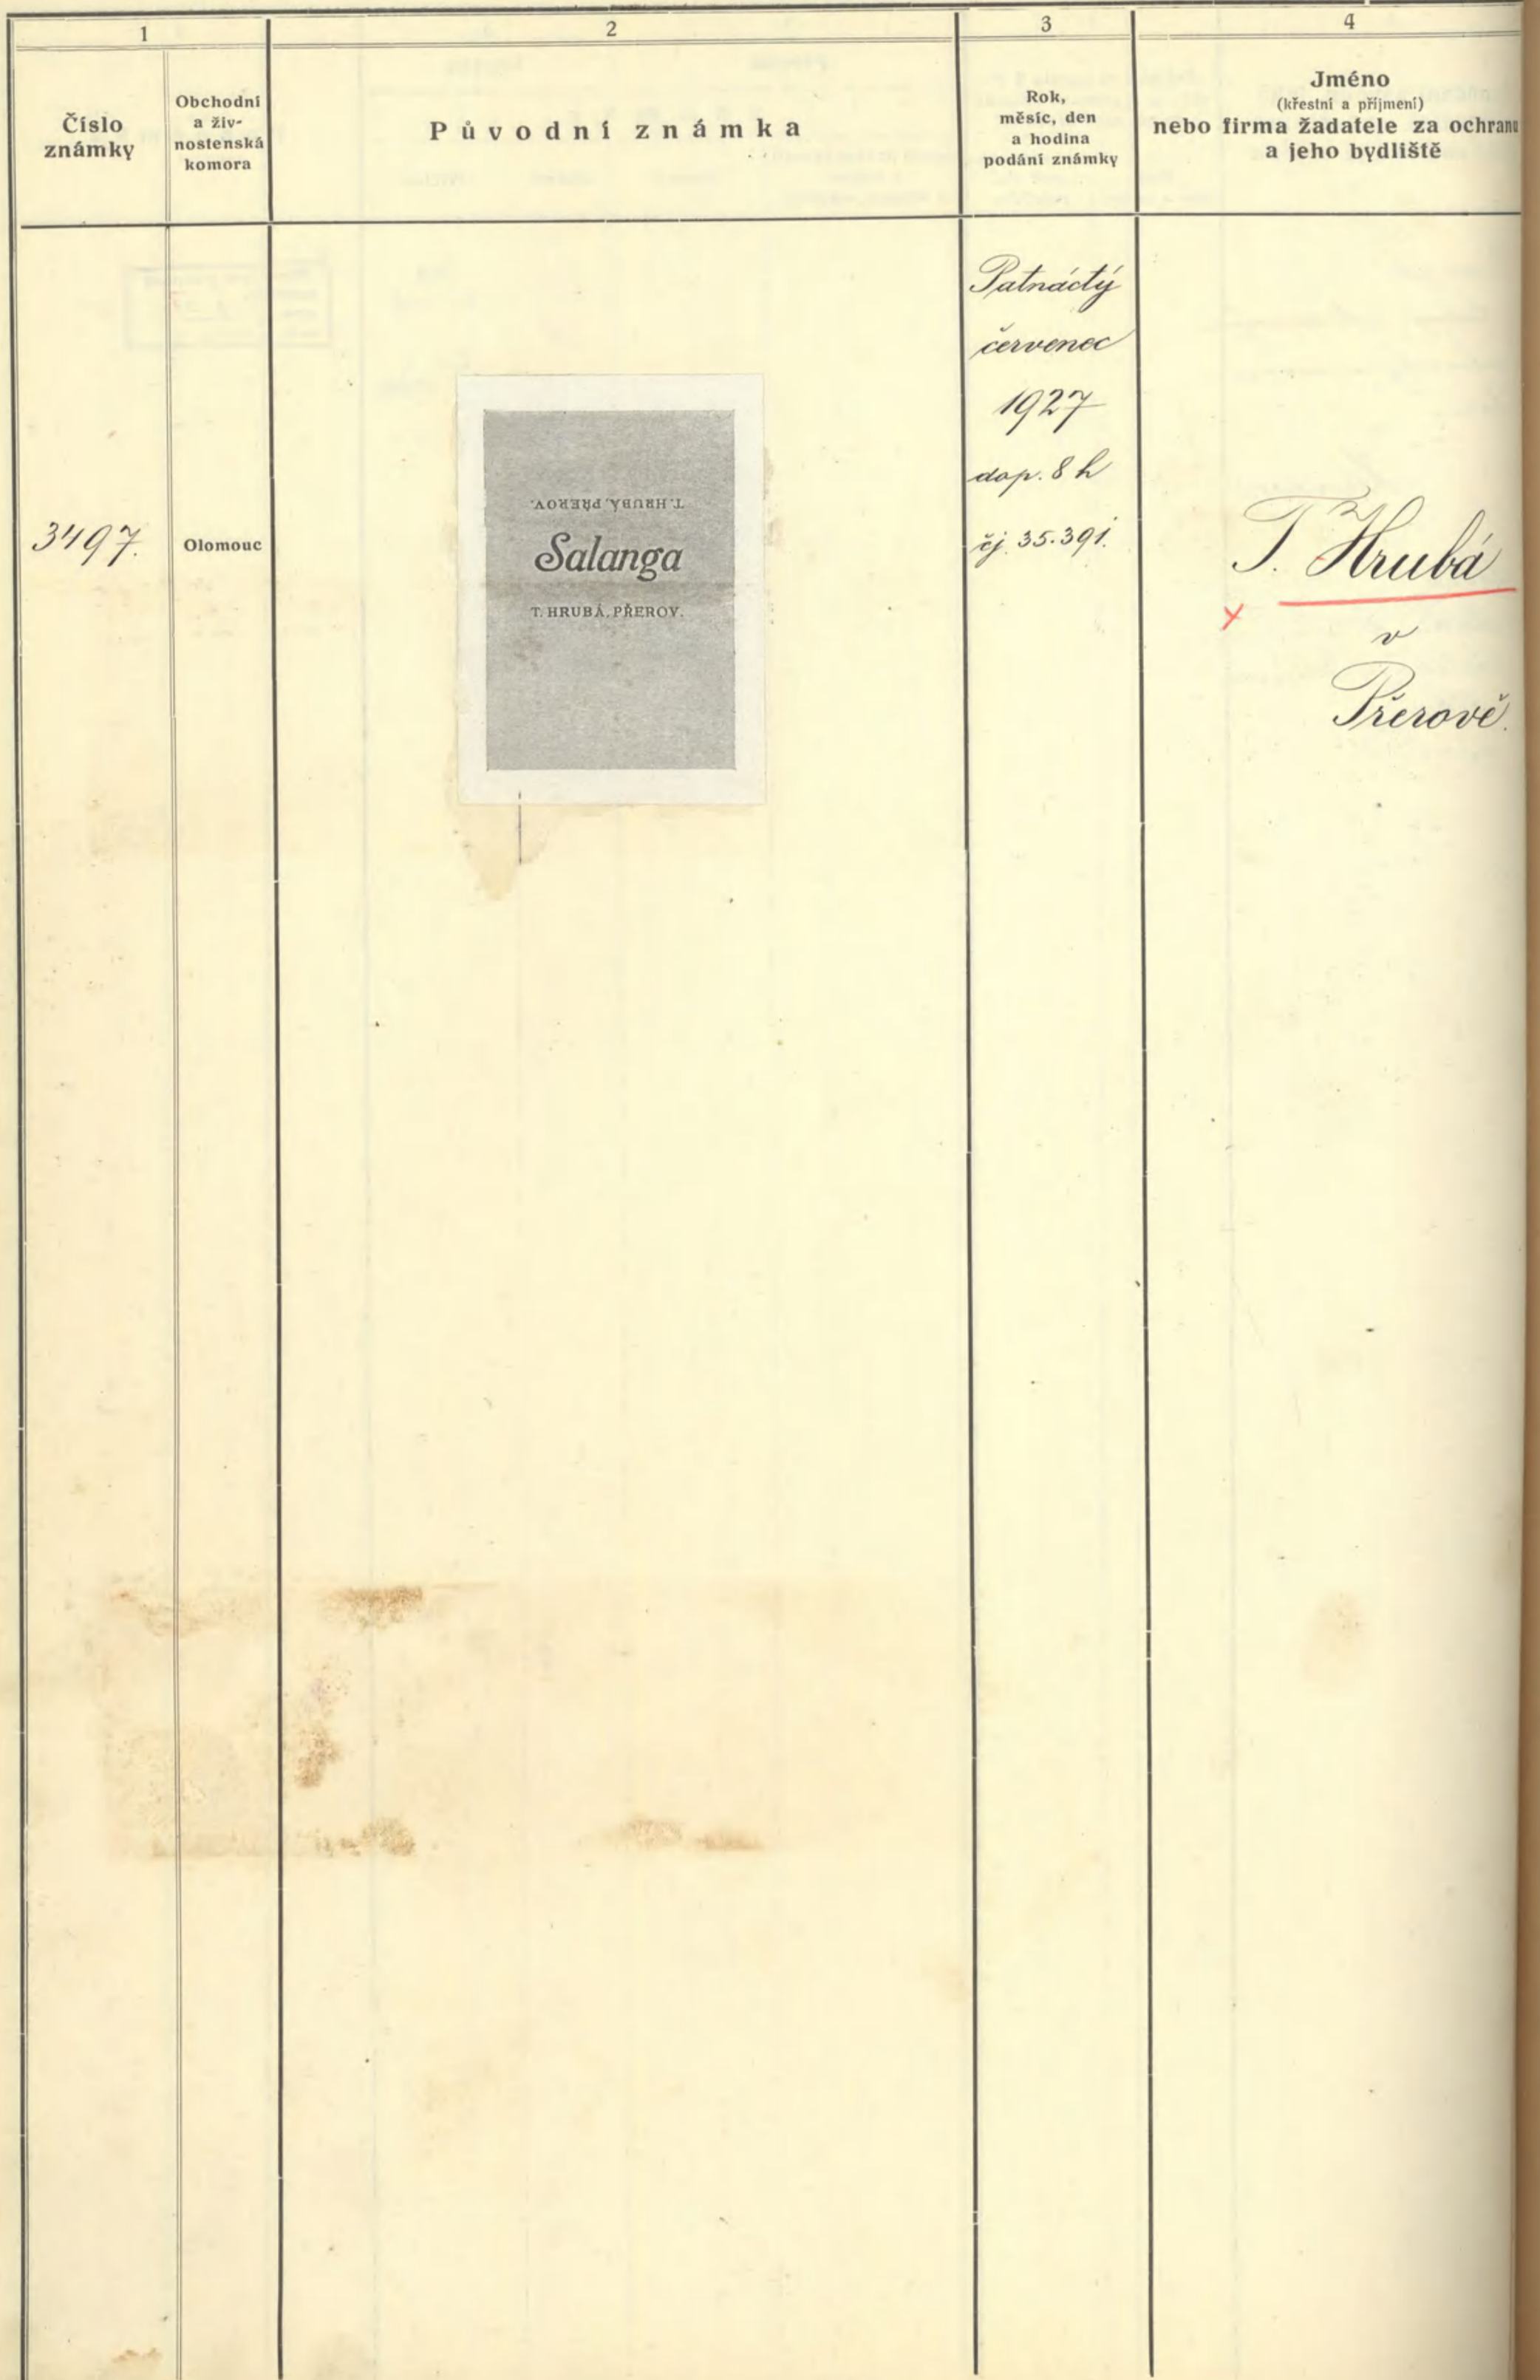 1
2
3
4
Číslo
známky
Obchodní
a živ-
nostenská
komora
Původní známka
Rok,
měsíc, den
a hodina
podání známky
Jméno
(křestní a příjmení)
nebo firma žadatele za ochranu
a jeho bydliště
3497.
Olomouc
T. HRUBÁ, PŘEROV.
Salanga
T. HRUBÁ, PŘEROV.
Patnáctý
červenec
1927
dop. 8 h
čj. 35.391.
T. Hrubá
v
Přerově.